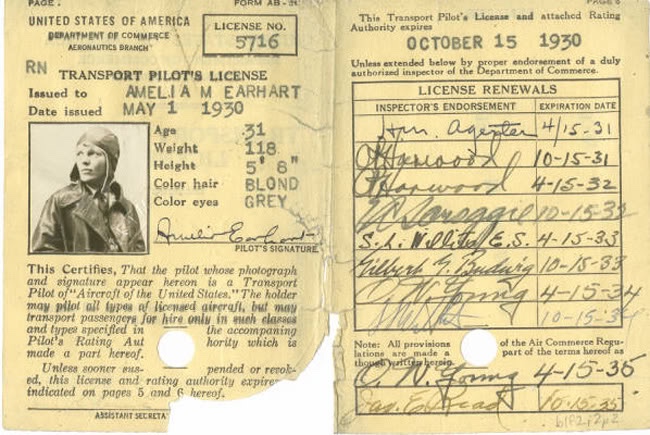 PAGE
FORM AB-
UNITED STATES OF AMERICA
DEPARTMENT OF COMMERCE
AERONAUTICS BRANCH
LICENSE NO.
5716
RN
TRANSPORT PILOT'S LICENSE
Issued to AMELIA M EARHART
Date issued MAY 1 1930
Age 31
Weight 118
Height 5' 8"
Color hair BLOND
Color eyes GREY
Amelia Earhart
PILOT'S SIGNATURE.
This Certifies, That the pilot whose photograph
and signature appear hereon is a Transport
Pilot of "Aircraft of the United States." The holder
may pilot all types of licensed aircraft, but may
transport passengers for hire only in such classes
and types specified in the accompaning
Pilot's Rating Aut hority which is
made a part hereof.
Unless sooner sus pended or revok-
ed, this license and rating authority expire
indicated on pages 5 and 6 hereof.
ASSISTANT SECRETA
PAGE
This Transport Pilot's License and attached Rating
Authority expires
OCTOBER 15 1930
Unless extended below by proper endorsement of a duly
authorized inspector of the Department of Commerce.
LICENSE RENEWALS
INSPECTOR'S ENDORSEMENT EXPIRATION DATE
4/15-31
Harwood 10-15-31
Harwood 4-15-32
10-15-32
S. L. Willits E.S. 4-15-33
Gilbert G. Budwig 10-15-33
C. W. Young 4-15-34
10-15-34
Note: All provisions of the Air Commerce Regu-
lations are made a part of the terms hereof as
though written herein.
C. W. Young 4-15-35
Jas. E. Read 10-15-35